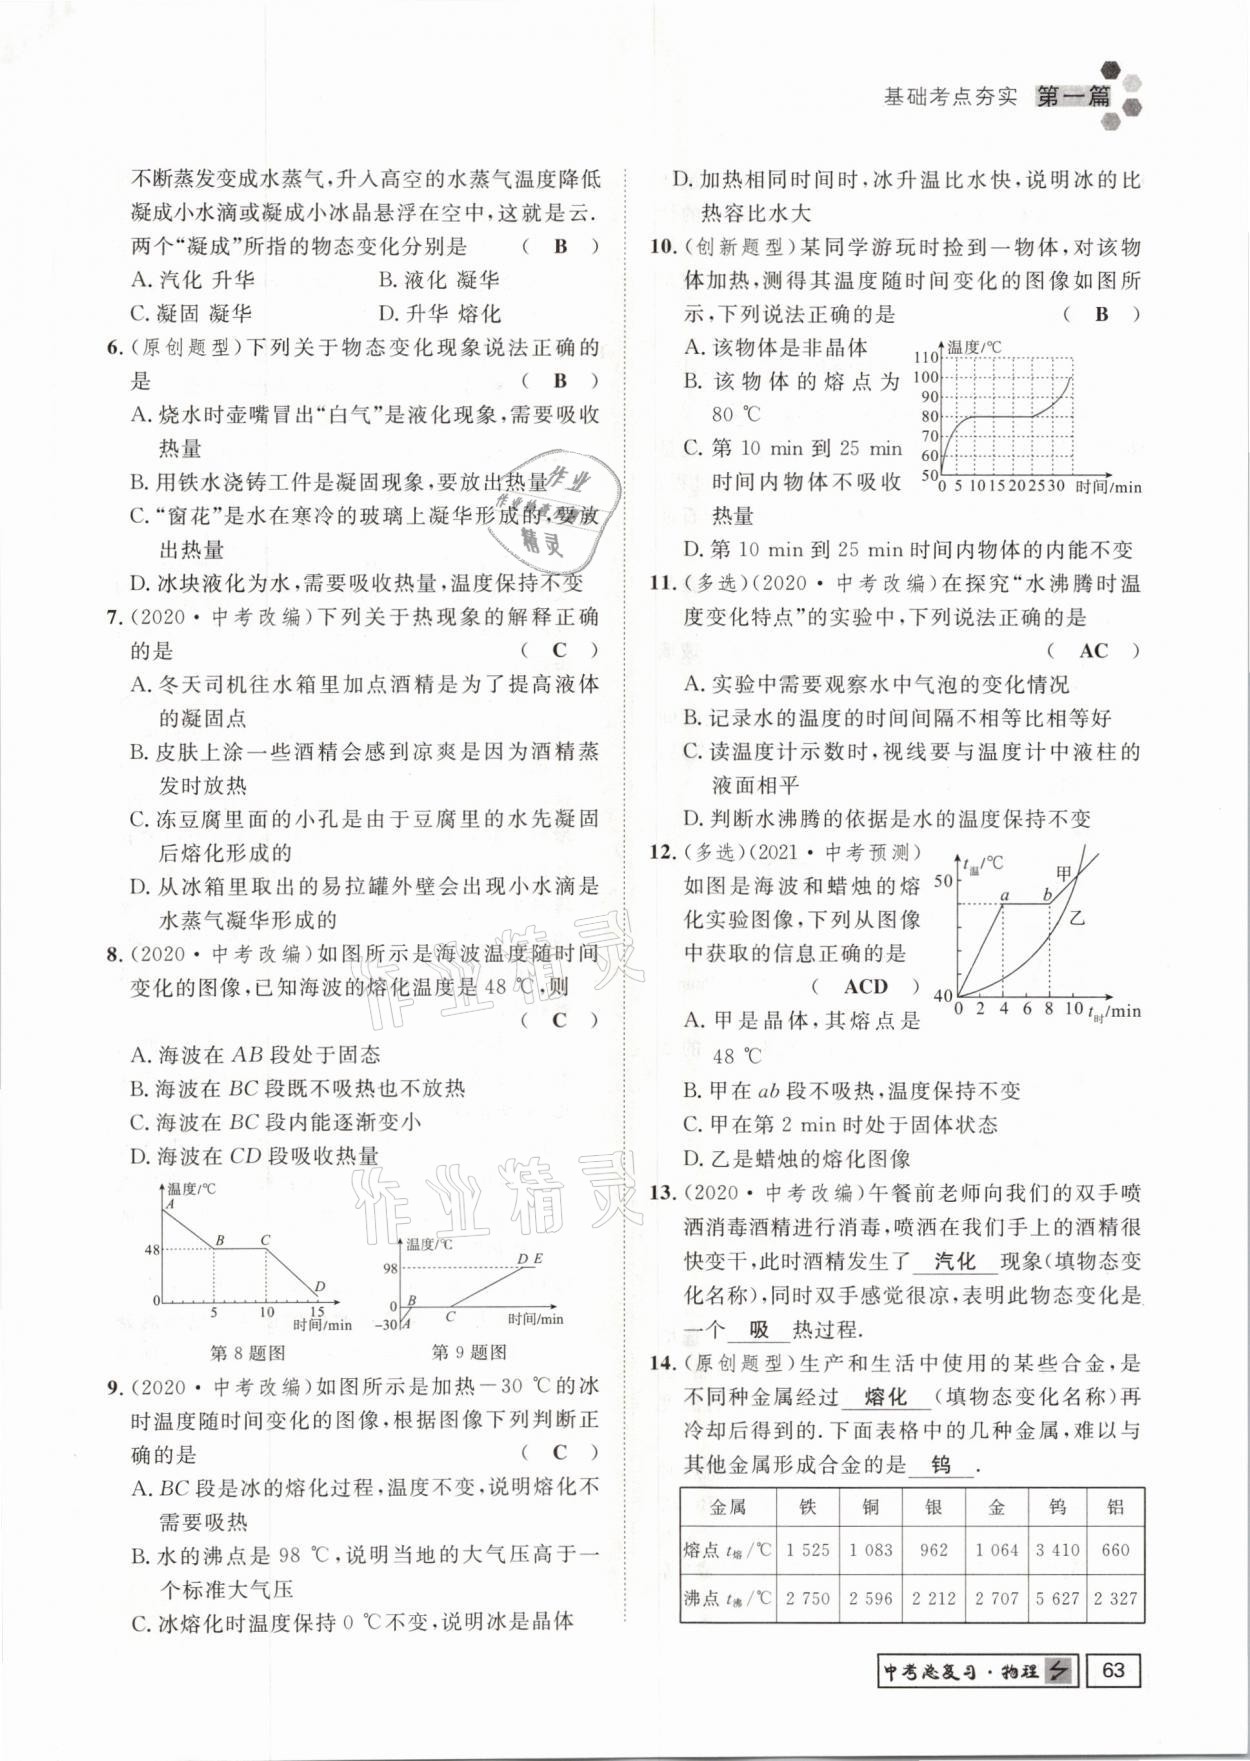 基础考点夯实 第一篇
不断蒸发变成水蒸气,升入高空的水蒸气温度降低
凝成小水滴或凝成小冰晶悬浮在空中,这就是云.
两个“凝成”所指的物态变化分别是 ( B )
A. 汽化 升华 B. 液化 凝华
C. 凝固 凝华 D. 升华 熔化
6. (原创题型)下列关于物态变化现象说法正确的
是 ( B )
A. 烧水时壶嘴冒出“白气”是液化现象,需要吸收
热量
B. 用铁水浇铸工件是凝固现象,要放出热量
C. “窗花”是水在寒冷的玻璃上凝华形成的,要放
出热量
D. 冰块液化为水,需要吸收热量,温度保持不变
7. (2020·中考改编)下列关于热现象的解释正确
的是 ( C )
A. 冬天司机往水箱里加点酒精是为了提高液体
的凝固点
B. 皮肤上涂一些酒精会感到凉爽是因为酒精蒸
发时放热
C. 冻豆腐里面的小孔是由于豆腐里的水先凝固
后熔化形成的
D. 从冰箱里取出的易拉罐外壁会出现小水滴是
水蒸气凝华形成的
8. (2020·中考改编)如图所示是海波温度随时间
变化的图像,已知海波的熔化温度是 48 ℃,则
( C )
A. 海波在 AB 段处于固态
B. 海波在 BC 段既不吸热也不放热
C. 海波在 BC 段内能逐渐变小
D. 海波在 CD 段吸收热量
温度/℃
A
48
B C
D
0 5 10 15
时间/min
第 8 题图
温度/℃
98
D E
0
B
-30 A C
时间/min
第 9 题图
9. (2020·中考改编)如图所示是加热－30 ℃的冰
时温度随时间变化的图像,根据图像下列判断正
确的是 ( C )
A. BC 段是冰的熔化过程,温度不变,说明熔化不
需要吸热
B. 水的沸点是 98 ℃,说明当地的大气压高于一
个标准大气压
C. 冰熔化时温度保持 0 ℃不变,说明冰是晶体
D. 加热相同时间时,冰升温比水快,说明冰的比
热容比水大
10. (创新题型)某同学游玩时捡到一物体,对该物
体加热,测得其温度随时间变化的图像如图所
示,下列说法正确的是 ( B )
A. 该物体是非晶体
B. 该物体的熔点为
80 ℃
C. 第 10 min 到 25 min
时间内物体不吸收
热量
D. 第 10 min 到 25 min 时间内物体的内能不变
温度/℃
110
100
90
80
70
60
50
0 5 10 15 20 25 30 时间/min
11. (多选)(2020·中考改编)在探究“水沸腾时温
度变化特点”的实验中,下列说法正确的是
( AC )
A. 实验中需要观察水中气泡的变化情况
B. 记录水的温度的时间间隔不相等比相等好
C. 读温度计示数时,视线要与温度计中液柱的
液面相平
D. 判断水沸腾的依据是水的温度保持不变
12. (多选)(2021·中考预测)
如图是海波和蜡烛的熔
化实验图像,下列从图像
中获取的信息正确的是
( ACD )
A. 甲是晶体,其熔点是
48 ℃
B. 甲在 ab 段不吸热,温度保持不变
C. 甲在第 2 min 时处于固体状态
D. 乙是蜡烛的熔化图像
t温/℃
50
甲
a b
乙
40
0 2 4 6 8 10 t时/min
13. (2020·中考改编)午餐前老师向我们的双手喷
洒消毒酒精进行消毒,喷洒在我们手上的酒精很
快变干,此时酒精发生了 汽化 现象(填物态变
化名称),同时双手感觉很凉,表明此物态变化是
一个 吸 热过程.
14. (原创题型)生产和生活中使用的某些合金,是
不同种金属经过 熔化 (填物态变化名称)再
冷却后得到的. 下面表格中的几种金属,难以与
其他金属形成合金的是 钨 .
金属 铁 铜 银 金 钨 铝
熔点 t熔/℃ 1 525 1 083 962 1 064 3 410 660
沸点 t沸/℃ 2 750 2 596 2 212 2 707 5 627 2 327
中考总复习·物理 63
作业
作业检查
精灵
作业精灵
作业精灵